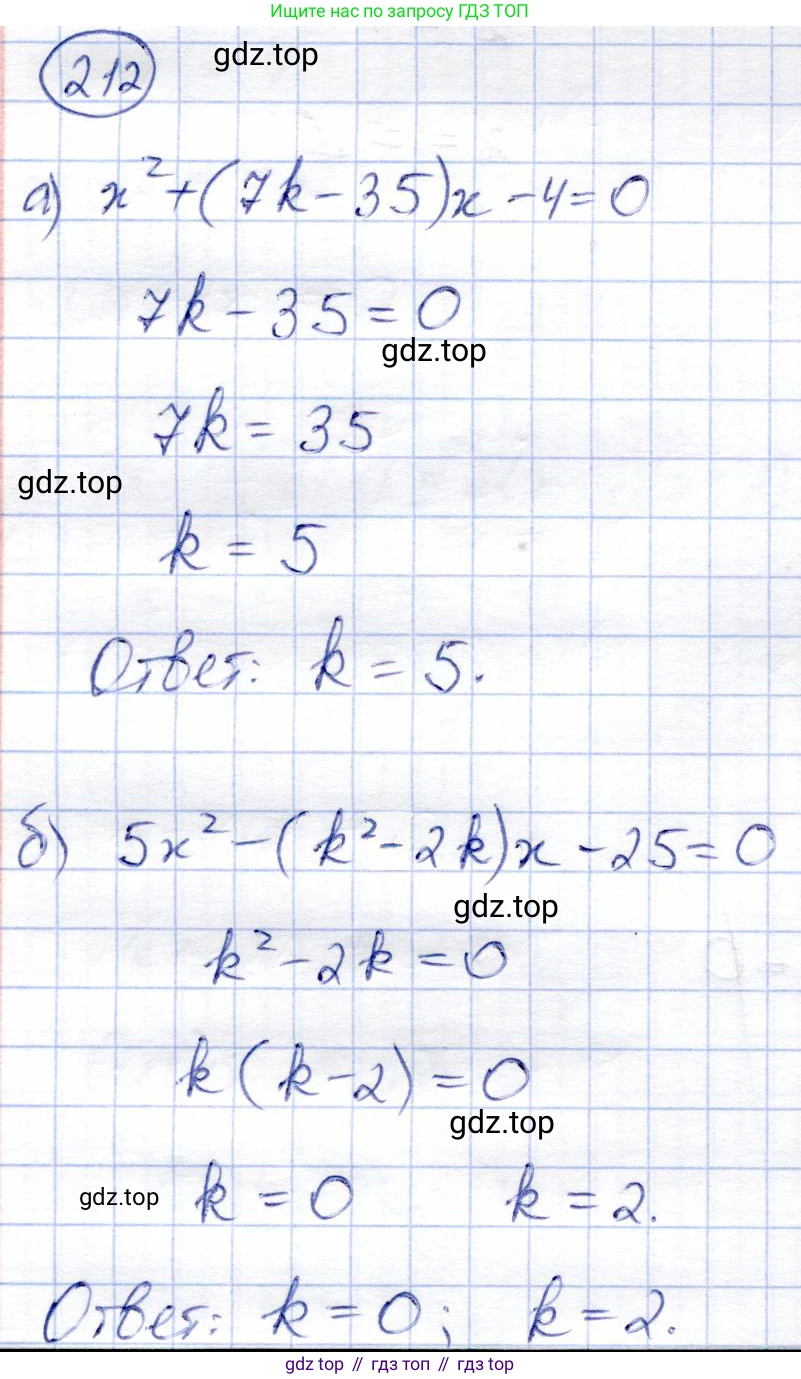 Ищите нас по запросу ГДЗ ТОП
212
gdz.top
а) x² + (7k - 35)x - 4 = 0
7k - 35 = 0
gdz.top
7k = 35
gdz.top
k = 5
Ответ: k = 5.
б) 5x² - (k² - 2k)x - 25 = 0
gdz.top
k² - 2k = 0
k (k - 2) = 0
gdz.top
gdz.top k = 0 k = 2.
Ответ: k = 0; k = 2.
gdz top // гдз топ // гдз top